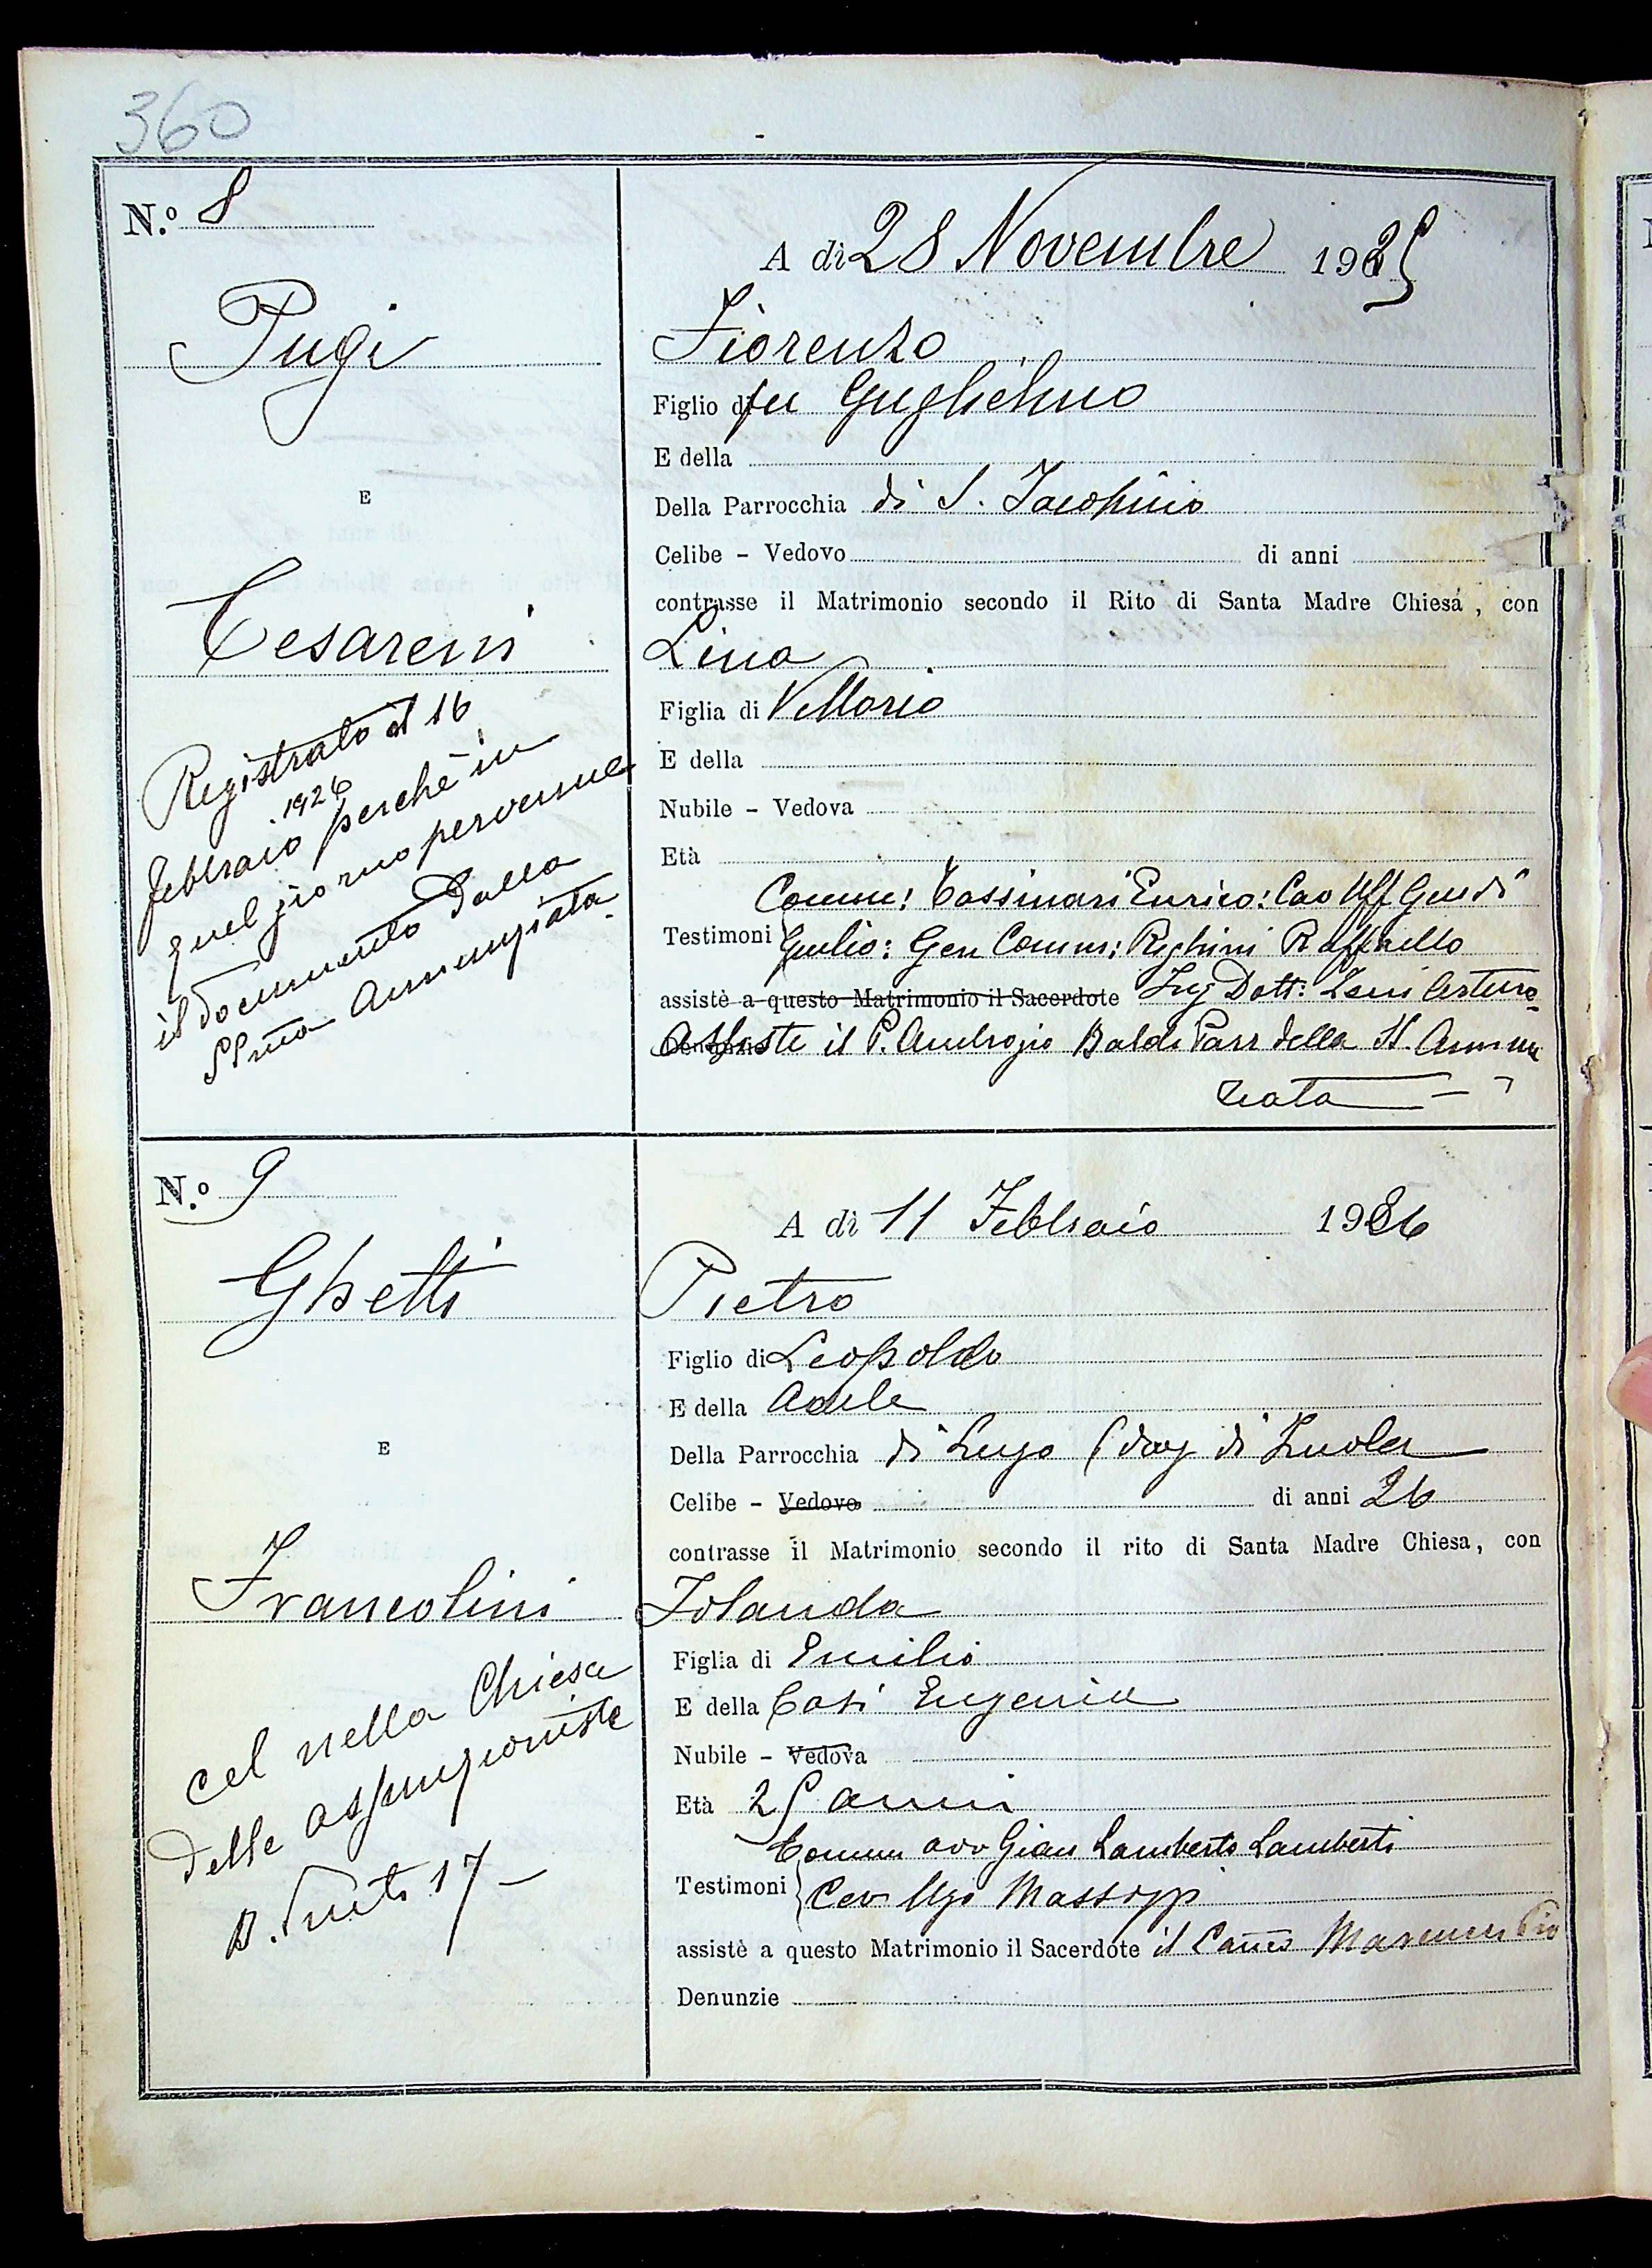 360
N.º 8
A dì 28 Novembre 1925
Pugi
E
Cesareni
Fiorenzo
Figlio di fu Guglielmo
E della
Della Parrocchia di S. Jacopino
Celibe - Vedovo di anni
contrasse il Matrimonio secondo il Rito di Santa Madre Chiesa, con
Lina
Figlia di Vittorio
E della
Nubile - Vedova
Età
Comm: Cassinari Enrico: Cav Uff Guidi
Testimoni Giulio: Gen Comm: Righini Raffaello
assistè a questo Matrimonio il Sacerdote Ing Dott: Arturo
Denunzie il P. Ambrogio Baldi Parr della SS. Annun
ziata
Registrato il 16
1926
febbraio perchè in
quel giorno pervenne
il documento dalla
SSma Annunziata
N.º 9
A dì 11 Febbraio 1926
Ghetti
E
Francolini
Pietro
Figlio di Leopoldo
E della Adele
Della Parrocchia di Lugo di Imola
Celibe - Vedovo di anni 26
contrasse il Matrimonio secondo il rito di Santa Madre Chiesa, con
Iolanda
Figlia di Emilio
E della Casi Eugenia
Nubile - Vedova
Età 25 anni
Comm avv Gian Lamberto Lamberti
Testimoni Cav Ugo
assistè a questo Matrimonio il Sacerdote il Pio
Denunzie
cel nella Chiesa
delle Assunzioniste
17